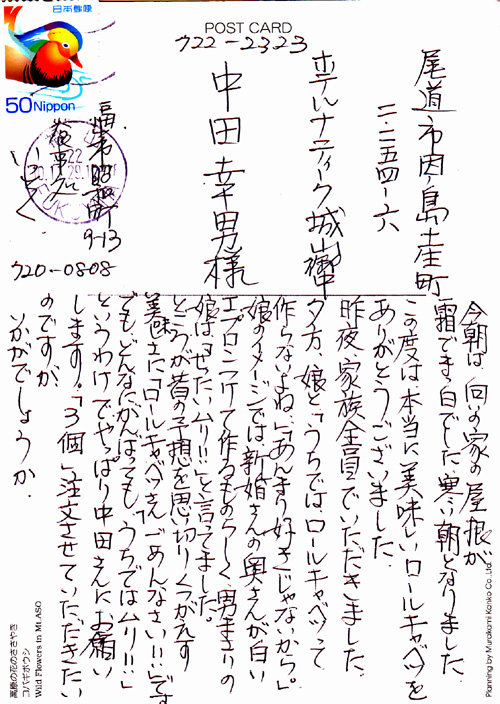 POST CARD
日本郵便
50 Nippon
〒722-2323
尾道市因ノ島土生町
二・二五四-六
ホテルナティーク城山
中田幸男様
福山市昭和町
9-13
〒720-0808
今朝は向いの家の屋根が
霜でまっ白でした。寒い朝となりました。
この度は本当に美味しいロールキャベツを
ありがとうございました。
昨夜、家族全員でいただきました。
夕方、娘と「うちではロールキャベツって
作らないよね。」「あんまり好きじゃないから。」
娘のイメージでは、新婚さんの奥さんが白い
エプロンつけて作るものらしく、男まさりの
娘は「ぜったいムリ!!」と言ってました。
ところが昔の予想を思い切りくつがえす
美味さに「ロールキャベツさんごめんなさい!!」です
でもどんなにがんばっても「うちではムリ!!」
というわけでやっぱり中田さんにお願い
します。「3個」注文させていただきたい
のですが、
いかがでしょうか。
高原の花のささやき
コバギボウシ
Wild Flowers in Mt.ASO
Planning by Murakami Kanko Co.,Ltd.